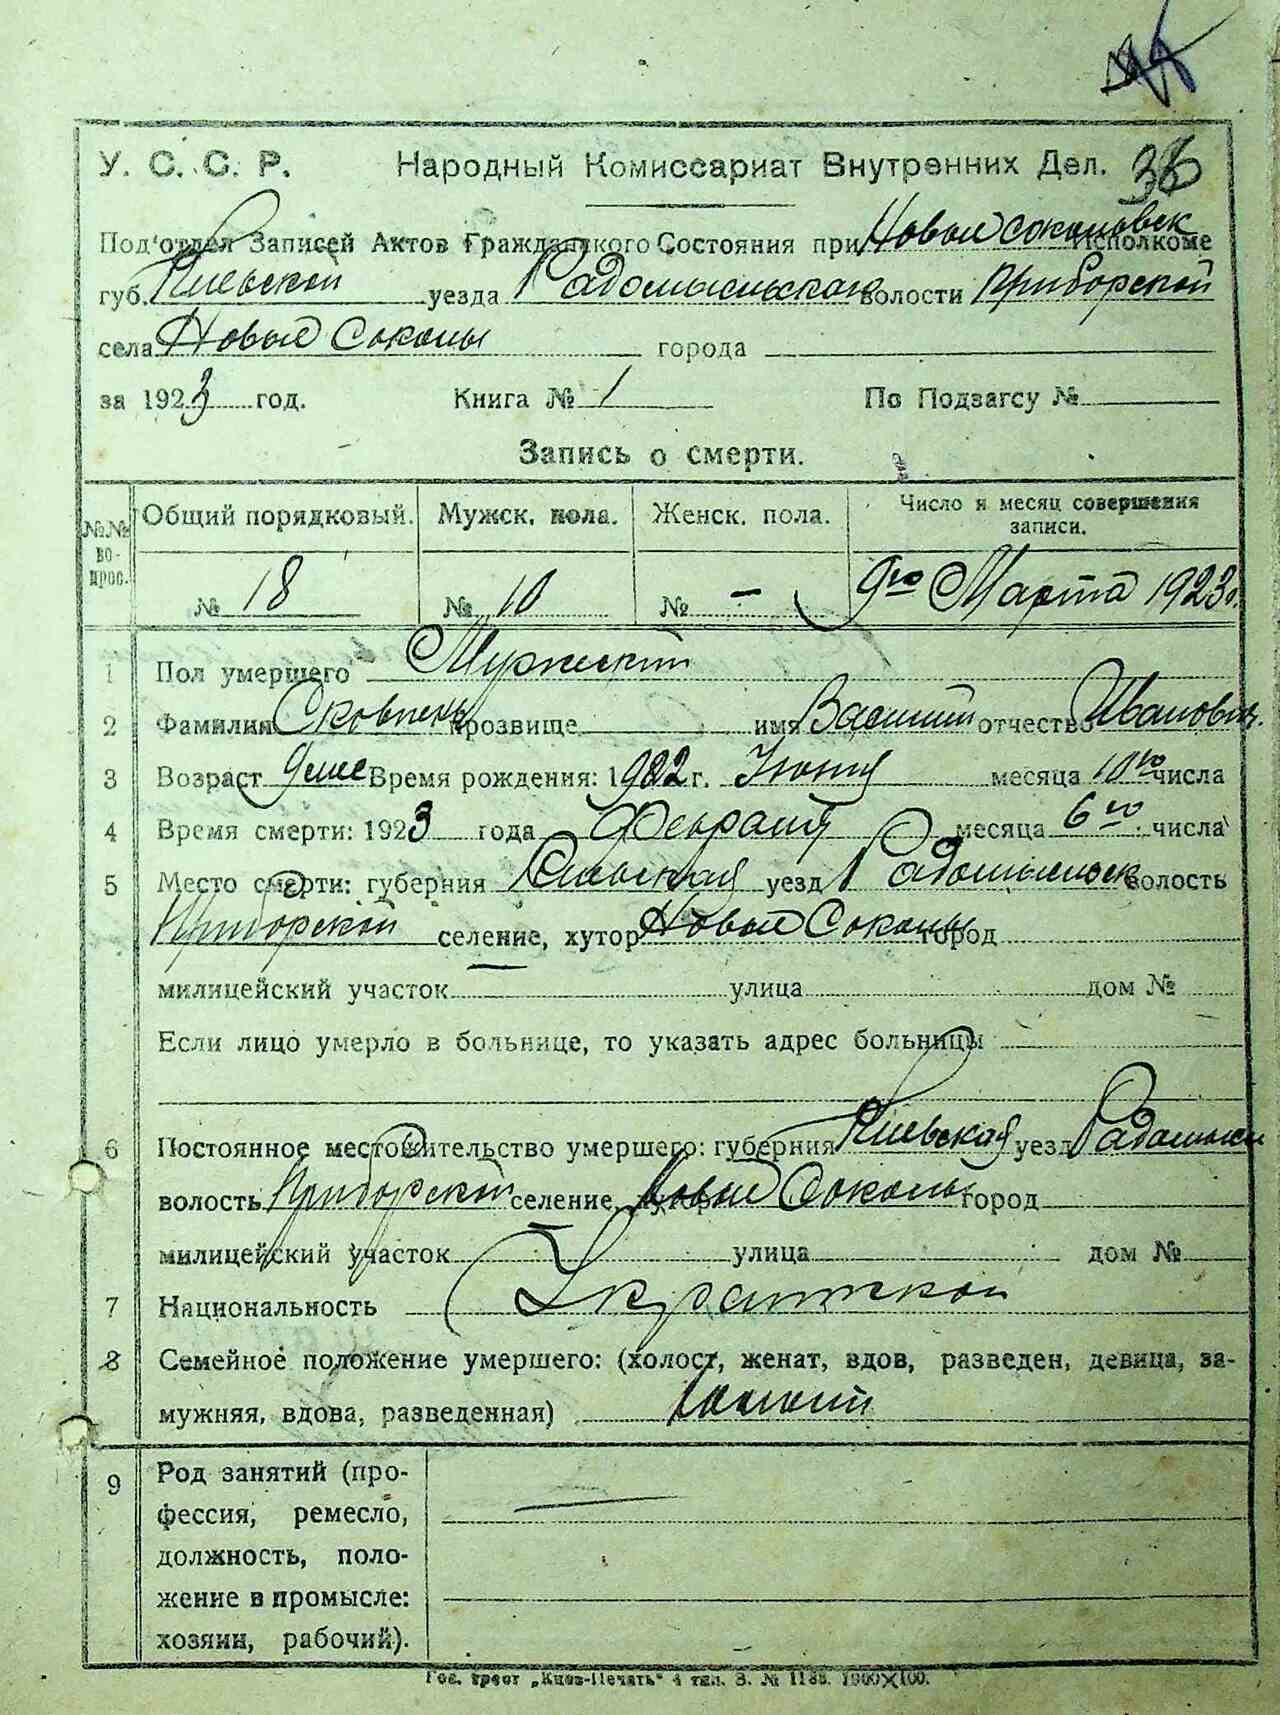 У. С. С. Р. Народный Комиссариат Внутренних Дел. 36
Подотдел Записей Актов Гражданского Состояния при Новые Соколовск Исполкоме
губ. Киевской уезда Радомысльского волости Приборской
села Новые Соколы города
за 1923 год. Книга № 1 По Подзагсу №
Запись о смерти.
№№ вопрос. Общий порядковый. Мужск. пола. Женск. пола. Число и месяц совершения записи.
№ 18 № 10 № - 9го Марта 1923г.
1 Пол умершего Мужский
2 Фамилия прозвище имя Василий отчество Иванович.
3 Возраст 9 мес Время рождения: 1922 г. Июня месяца 10го числа
4 Время смерти: 1923 года Февраля месяца 6го числа
5 Место смерти: губерния Киевская уезд Радомысльск волость
Приборской селение, хутор Новые Соколы город
милицейский участок улица дом №
Если лицо умерло в больнице, то указать адрес больницы
6 Постоянное местожительство умершего: губерния Киевская уезд Радомысл
волость Приборской селение, хутор Новые Соколы город
милицейский участок улица дом №
7 Национальность
8 Семейное положение умершего: (холост, женат, вдов, разведен, девица, за-
мужняя, вдова, разведенная)
9 Род занятий (про-
фессия, ремесло,
должность, поло-
жение в промысле:
хозяин, рабочий).
Гос. трест „Киев-Печать" 4 тип. З. № 1188. 1900×100.